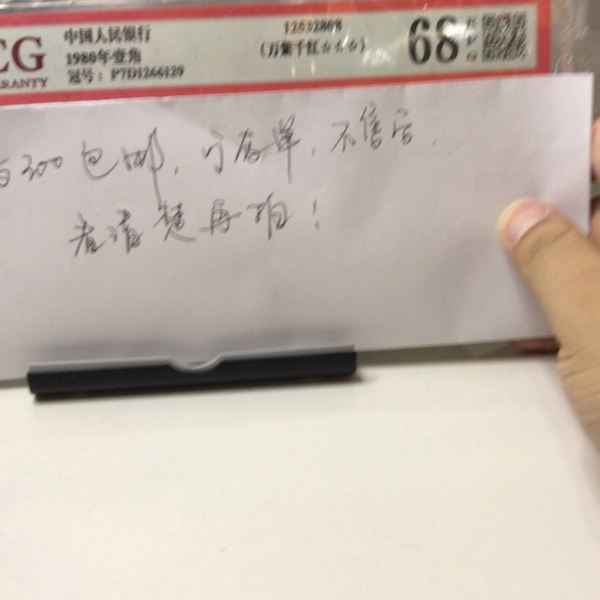 CG
RANTY
中国人民银行
1980年壹角
冠号：P7D1266129
12532808
（万紫千红☆☆☆）
68
EPQ
300包邮，可存单，不售后，
看清楚再拍！